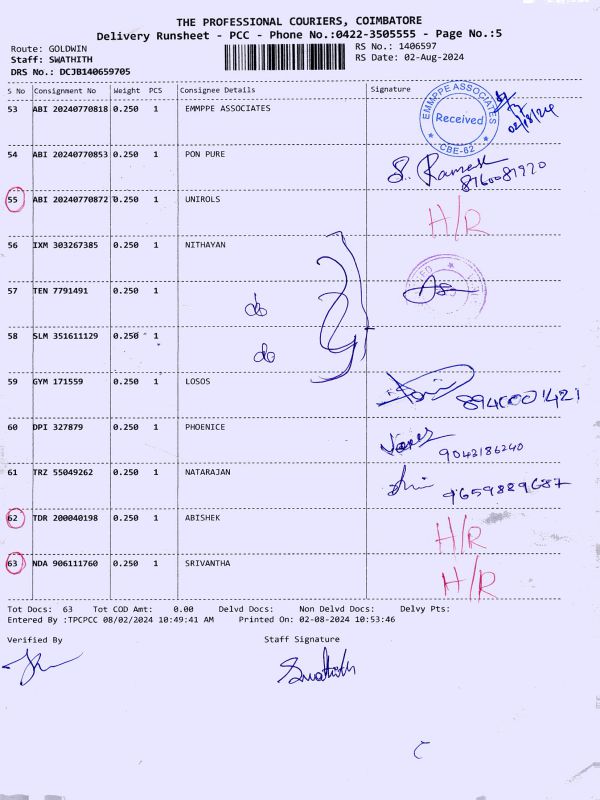 THE PROFESSIONAL COURIERS, COIMBATORE
Delivery Runsheet - PCC - Phone No.:0422-3505555 - Page No.:5
Route: GOLDWIN RS No.: 1406597
Staff: SWATHITH RS Date: 02-Aug-2024
DRS No.: DCJB140659705
S No Consignment No Weight PCS Consignee Details Signature
53 ABI 20240770818 0.250 1 EMMPPE ASSOCIATES EMMPPE ASSOCIATES Received CBE-62 02/8/24
54 ABI 20240770853 0.250 1 PON PURE S. Ramesh 8760087920
55 ABI 20240770872 0.250 1 UNIROLS H/R
56 IXM 303267385 0.250 1 NITHAYAN
57 TEN 7791491 0.250 1 do
58 SLM 351611129 0.250 1 do
59 GYM 171559 0.250 1 LOSOS 8940001421
60 DPI 327879 0.250 1 PHOENICE 9042186240
61 TRZ 55049262 0.250 1 NATARAJAN 9659829687
62 TDR 200040198 0.250 1 ABISHEK H/R
63 NDA 906111760 0.250 1 SRIVANTHA H/R
Tot Docs: 63 Tot COD Amt: 0.00 Delvd Docs: Non Delvd Docs: Delvy Pts:
Entered By :TPCPCC 08/02/2024 10:49:41 AM Printed On: 02-08-2024 10:53:46
Verified By Staff Signature
Swathith